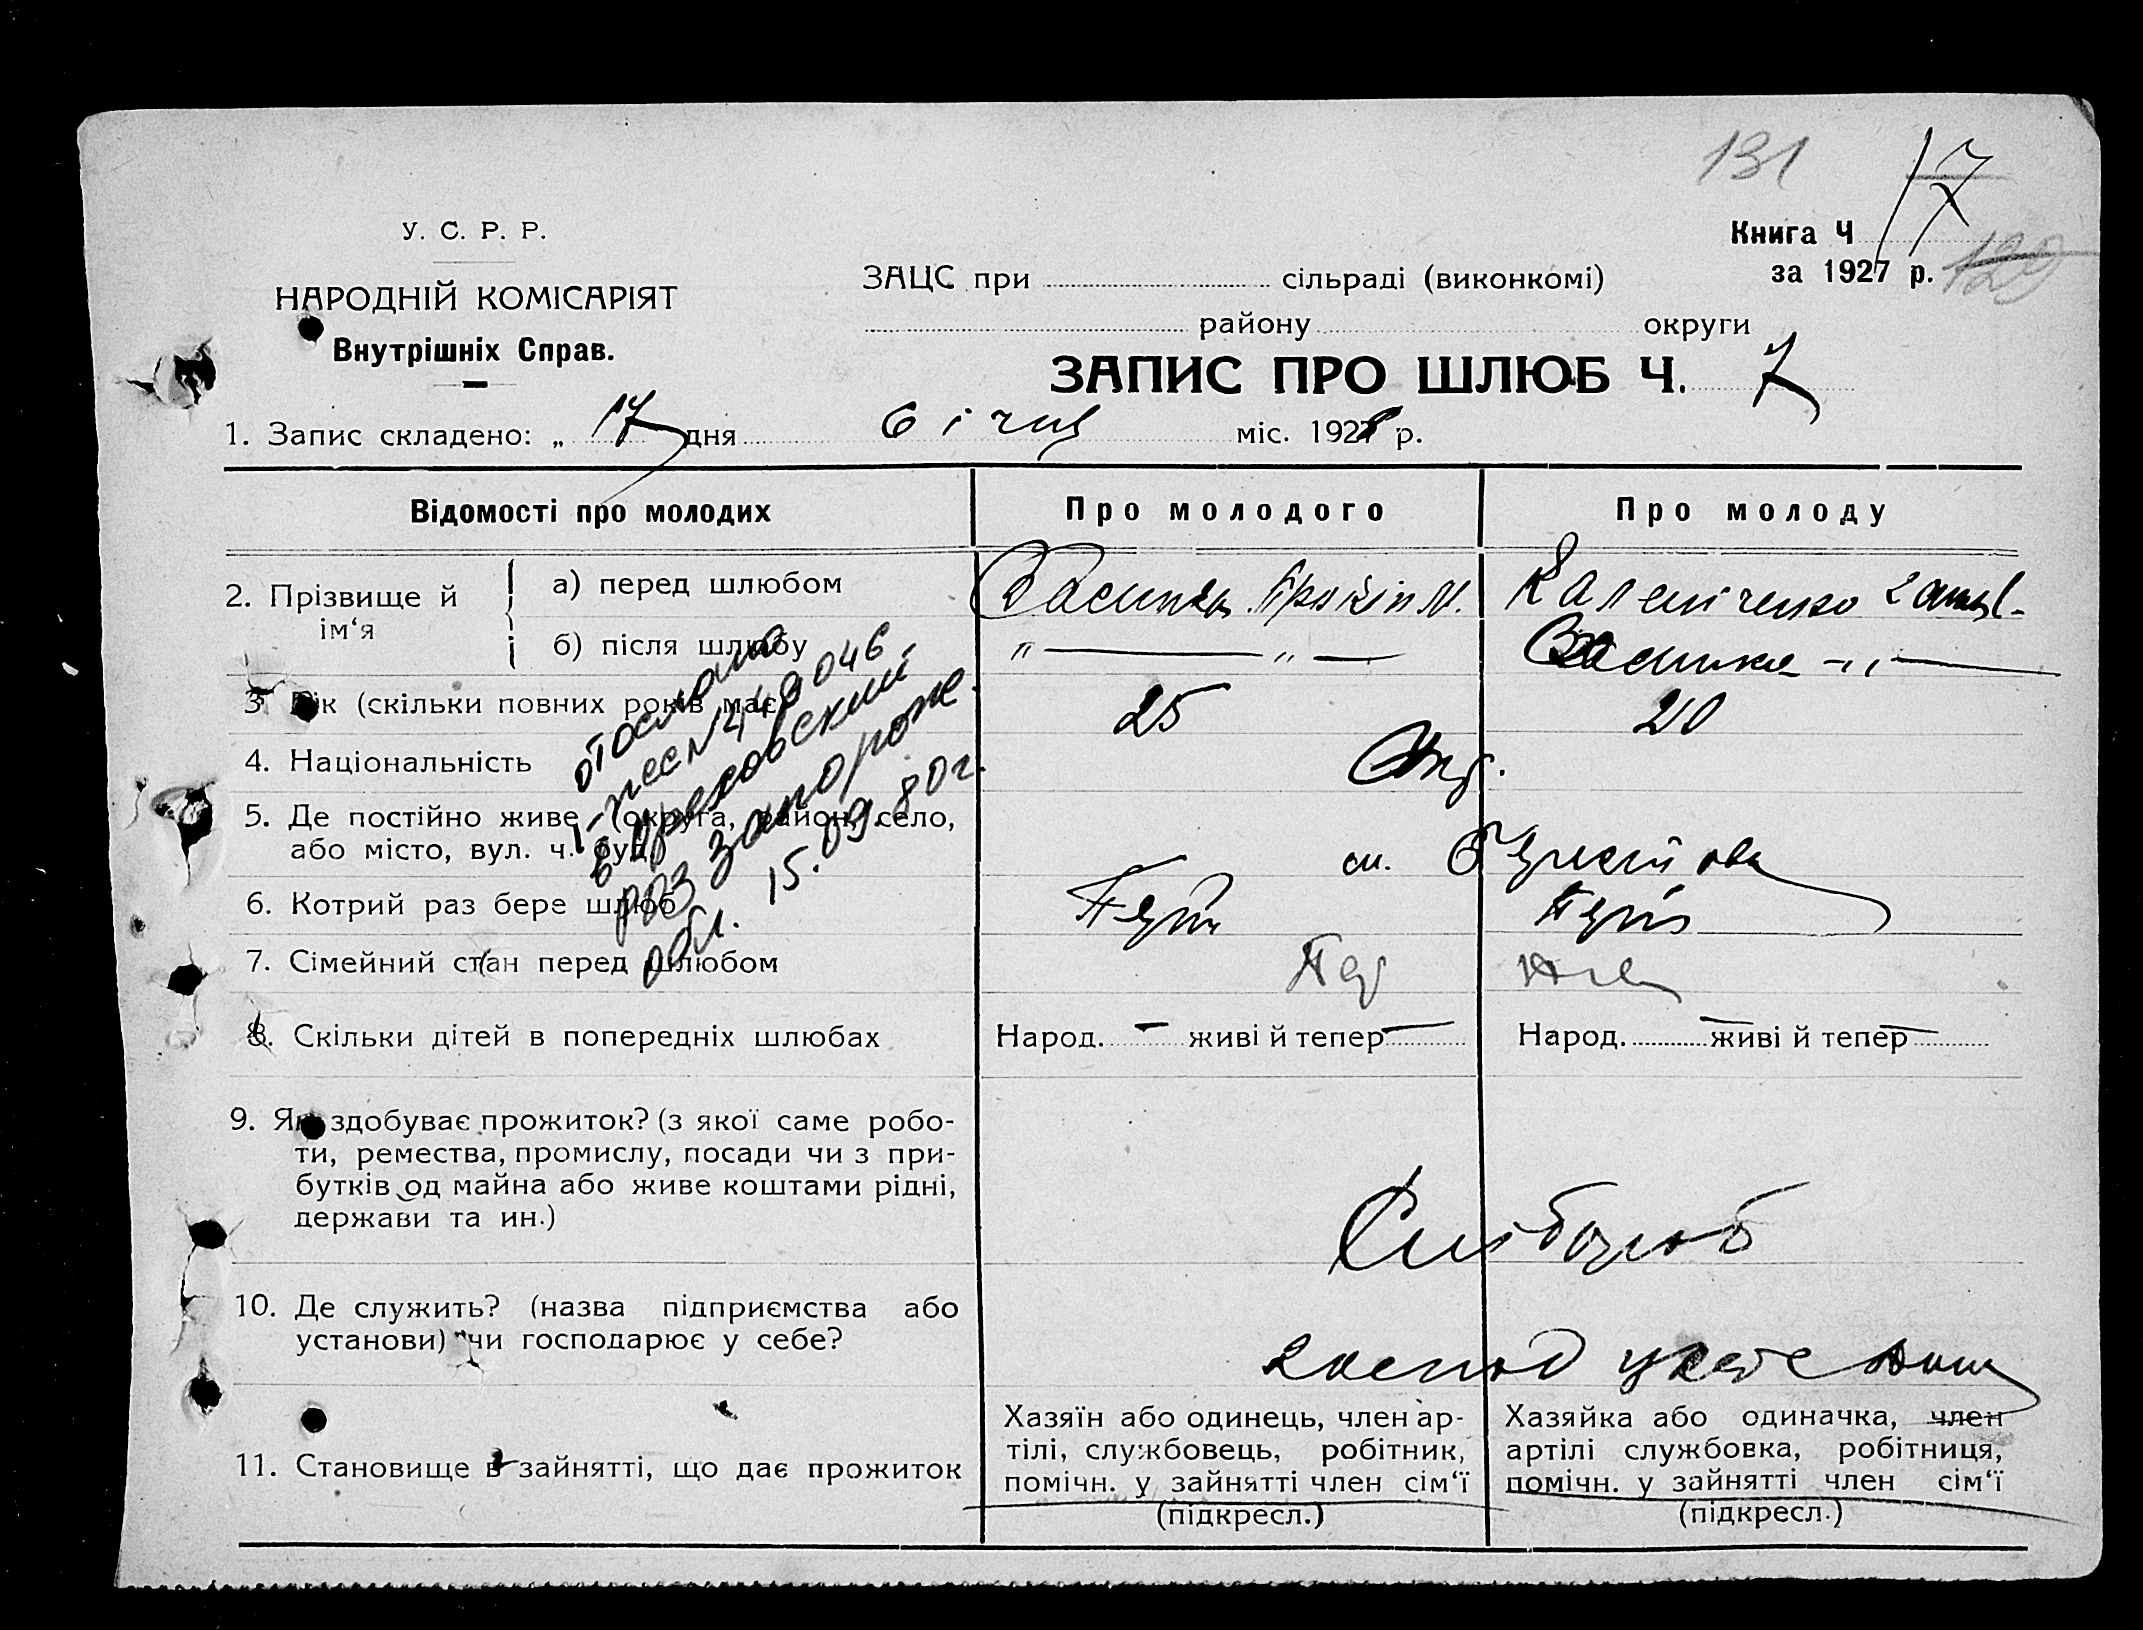 131
17
У. С. Р. Р.
НАРОДНІЙ КОМІСАРІЯТ
Внутрішніх Справ.
Книга Ч
за 1927 р. 129
ЗАЦС при сільраді (виконкомі)
району округи
ЗАПИС ПРО ШЛЮБ Ч. 7
1. Запис складено: „ 17 дня 6 січня міс. 1928 р.
Відомості про молодих Про молодого Про молоду
2. Прізвище й ім‘я
а) перед шлюбом
б) після шлюбу
„ — „ —
3. Вік (скільки повних років має) 25 20
4. Національність Укр.
5. Де постійно живе (округа, район, село,
або місто, вул. ч. буд.) см.
6. Котрий раз бере шлюб
7. Сімейний стан перед шлюбом
8. Скільки дітей в попередніх шлюбах Народ. — живі й тепер — Народ. — живі й тепер —
9. Як здобуває прожиток? (з якої саме робо-
ти, ремества, промислу, посади чи з при-
бутків од майна або живе коштами рідні,
держави та ин.)
10. Де служить? (назва підприємства або
установи) чи господарює у себе?
11. Становище в зайнятті, що дає прожиток
Хазяїн або одинець, член ар-
тілі, службовець, робітник,
помічн. у зайнятті член сім‘ї
(підкресл.)
Хазяйка або одиначка, член
артілі службовка, робітниця,
помічн. у зайнятті член сім‘ї
(підкресл.)
отослано
N 449046
в Ореховский
роз запорож
обл. 15.09.80г.